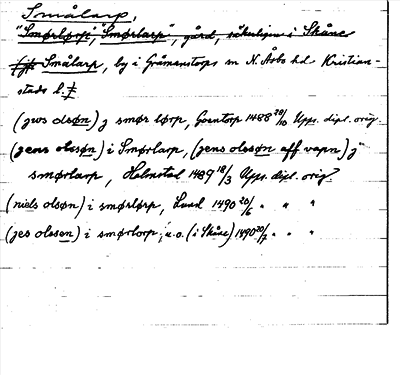 Smålarp.
"Smørlørp", "Smørlarp", gård, säkerligen i Skåne
Smålarp, by i Gråmanstorps sn N. Åsbo hd. Kristian-
stads l.
(jwss olsøn) j smør lørp, Gosntorp 1488 20/10 Upps. dipl. orig.
(jens olssøn) i Smørlarp, (jens olssøn aff vapn) j
smørlarp, Helmstad 1489 18/3 Upps. dipl. orig.
(niels olsøn) i smørlørp, Lund 1490 20/6 " " "
(jes olsson) i smørlorp, u.o. (i Skåne) 1490 20/7 " " "